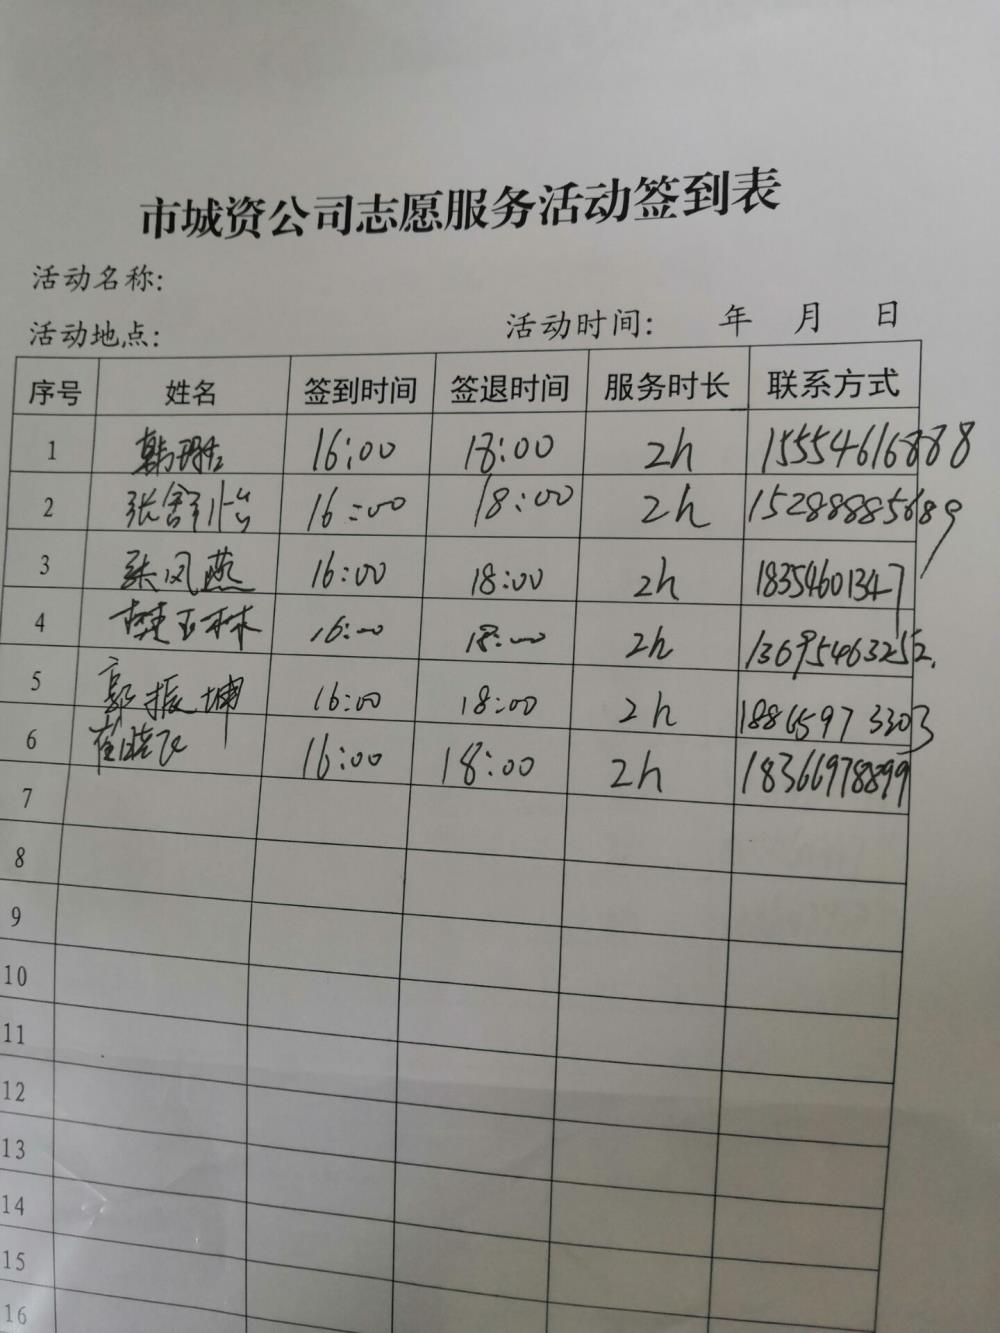 市城资公司志愿服务活动签到表
活动名称:
活动地点: 活动时间: 年 月 日
序号 姓名 签到时间 签退时间 服务时长 联系方式
1 16:00 18:00 2h 15554616888
2 16:00 18:00 2h 15288885689
3 张凤燕 16:00 18:00 2h 18354601347
4 樊玉林 16:00 18:00 2h 13695463252
5 郭振坤 16:00 18:00 2h 18865973303
6 崔晓飞 16:00 18:00 2h 18366978899
7
8
9
10
11
12
13
14
15
16